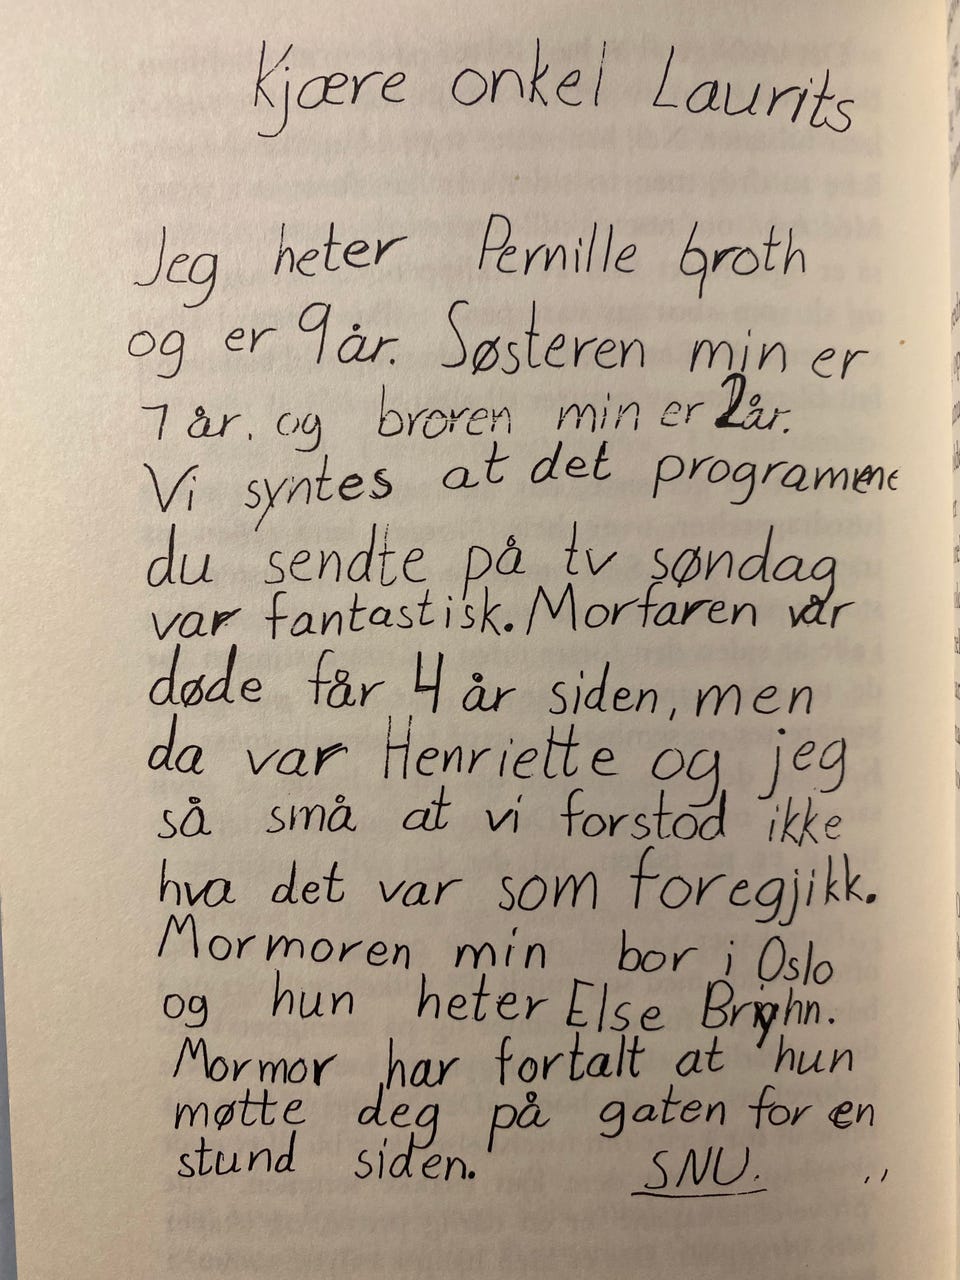 Kjære onkel Laurits
Jeg heter Pernille Groth
og er 9 år. Søsteren min er
7 år. og broren min er 2 år.
Vi syntes at det programene
du sendte på tv søndag
var fantastisk. Morfaren vår
døde får 4 år siden, men
da var Henriette og jeg
så små at vi forstod ikke
hva det var som foregjikk.
Mormoren min bor i Oslo
og hun heter Else Bryhn.
Mormor har fortalt at hun
møtte deg på gaten for en
stund siden. SNU.